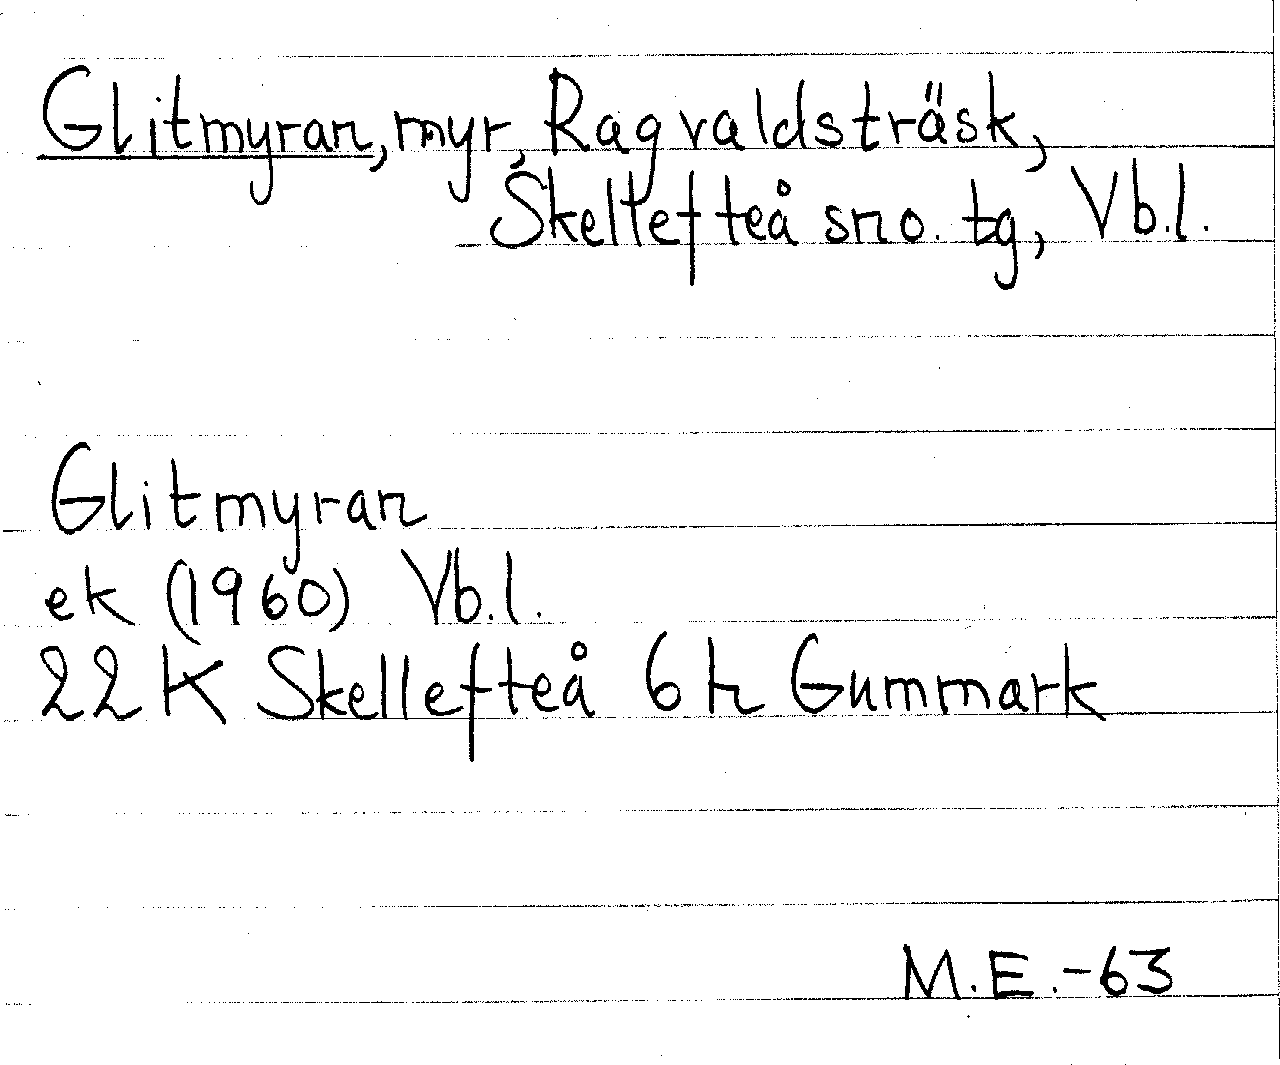 Glitmyran, myr, Ragvaldsträsk,
Skellefteå sno. tg, Vb.l.
Glitmyran
ek (1960) Vb.l.
22K Skellefteå 6h Gummark
M.E.-63